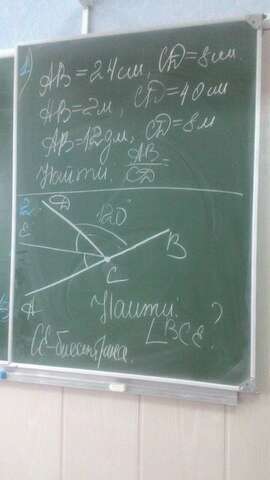 1) AB = 24 см, CD = 8 см.
AB = 2 м, CD = 40 см
AB = 12 дм, CD = 8 м
Найти: AB
CD =
2. D
120
E
B
C
A
Найти:
∠BCE ?
CE - биссектриса.